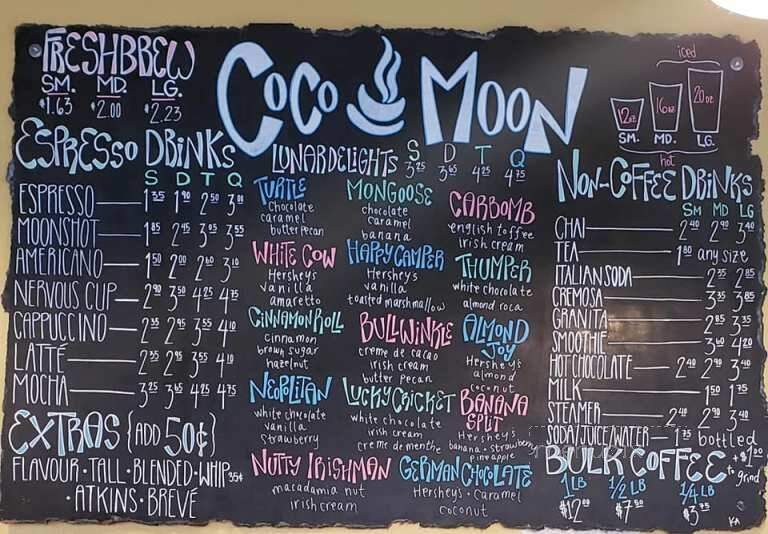 FRESHBREW
SM. MD. LG.
$1.63 $2.00 $2.23
COCO MOON
iced
12oz 16oz 20oz
SM. MD. LG.
hot
ESPRESSO DRINKS
S D T Q
ESPRESSO 1 35 1 90 2 50 3 00
MOONSHOT 1 85 2 45 3 05 3 55
AMERICANO 1 50 2 00 2 60 3 10
NERVOUS CUP 2 90 3 50 4 25 4 75
CAPPUCCINO 2 35 2 95 3 55 4 10
LATTÉ 2 35 2 95 3 55 4 10
MOCHA 3 25 3 65 4 25 4 75
EXTRAS {ADD 50¢}
FLAVOUR · TALL · BLENDED · WHIP 35¢
· ATKINS · BREVÉ
LUNAR DELIGHTS S 3 25 D 3 65 T 4 25 Q 4 75
TURTLE
chocolate
caramel
butter pecan
MONGOOSE
chocolate
caramel
banana
CARBOMB
english toffee
irish cream
WHITE COW
Hersheys
vanilla
amaretto
HAPPY CAMPER
Hersheys
vanilla
toasted marshmallow
THUMPER
white chocolate
almond roca
CINNAMON ROLL
cinnamon
brown sugar
hazelnut
BULLWINKLE
creme de cacao
irish cream
butter pecan
ALMOND
JOY
Hersheys
almond
coconut
NEOPOLITAN
white chocolate
vanilla
strawberry
LUCKY CRICKET
white chocolate
irish cream
creme de menthe
BANANA
SPLIT
Hersheys
banana · strawberry
pineapple
NUTTY IRISHMAN
macadamia nut
irish cream
GERMAN CHOCOLATE
Hersheys · caramel
coconut
NON-COFFEE DRINKS
SM MD LG
CHAI 2 40 2 90 3 40
TEA 1 80 any size
ITALIAN SODA 2 35 2 85
CREMOSA 3 35 3 85
GRANITA 2 85 3 35
SMOOTHIE 3 60 4 20
HOT CHOCOLATE 2 40 2 90 3 40
MILK 1 50 1 75
STEAMER 2 40 2 90 3 40
SODA/JUICE/WATER 1 75 bottled
BULK COFFEE +$1.00 to grind
1 LB 1/2 LB 1/4 LB
$12 00 $7 50 $3 95
KA